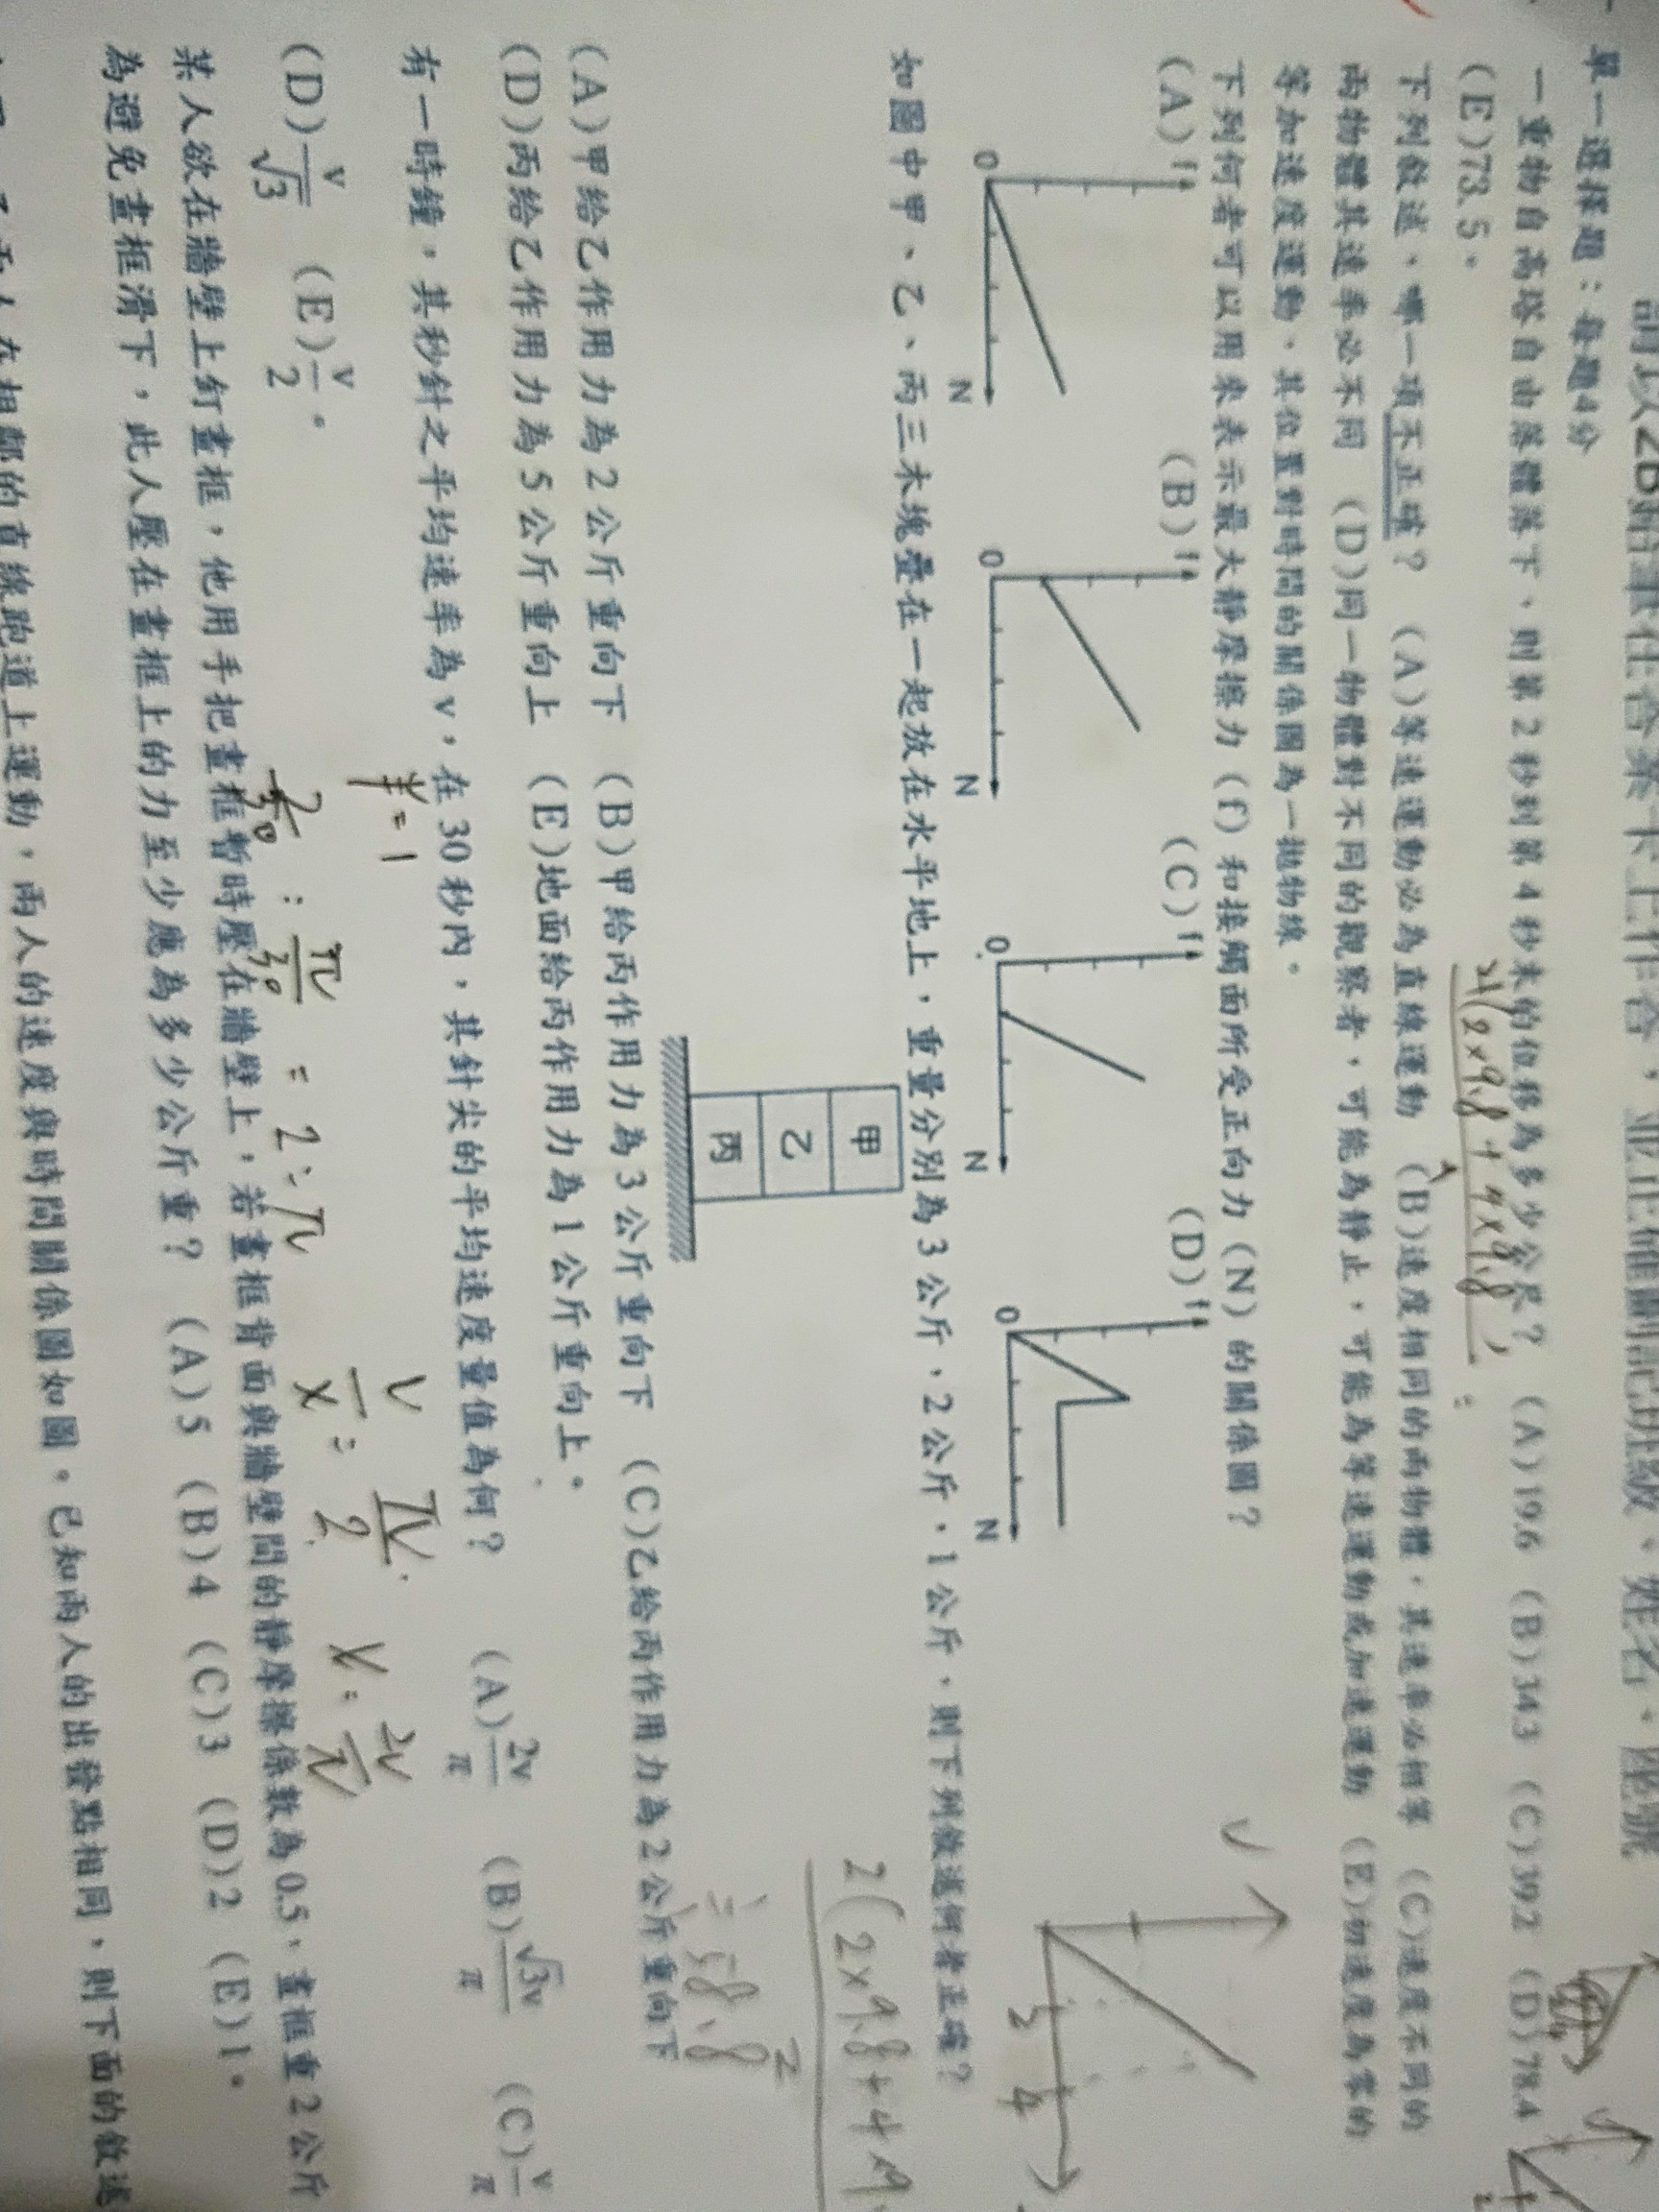 請以2B鉛筆在答案卡上作答，並正確劃記班級、姓名、座號
單一選擇題：每題4分
一重物自高塔自由落體落下、則第2秒到第4秒末的位移為多少公尺？ (A)19.6 (B)34.3 (C)39.2 (D)78.4
(E)73.5。
2(2×9.8+4×9.8)
下列敘述、哪一項不正確？ (A)等速運動必為直線運動 (B)速度相同的兩物體，其速率必相等 (C)速度不同的
兩物體其速率必不同 (D)同一物體對不同的觀察者，可能為靜止，可能為等速運動或加速運動 (E)初速度為零的
等加速度運動、其位置對時間的關係圖為一拋物線。
下列何者可以用來表示最大靜摩擦力(f)和接觸面所受正向力(N)的關係圖？
(A) f 0 N (B) f 0 N (C) f 0 N (D) f 0 N
V 2 4
如圖中甲、乙、丙三木塊疊在一起放在水平地上，重量分別為3公斤、2公斤、1公斤，則下列敘述何者正確？
甲
乙
丙
2(2×9.8+4×9.
2
=58.8
(A)甲給乙作用力為2公斤重向下 (B)甲給丙作用力為3公斤重向下 (C)乙給丙作用力為2公斤重向下
(D)丙給乙作用力為5公斤重向上 (E)地面給丙作用力為1公斤重向上。
有一時鐘，其秒針之平均速率為v，在30秒內，其針尖的平均速度量值為何？ (A)2v/π (B)√3v/π (C)v/π
(D)v/√3 (E)v/2。
r=1
2/30 : π/30 = 2:π
V/x = π/2
V= 2V/π
某人欲在牆壁上釘畫框，他用手把畫框暫時壓在牆壁上，若畫框背面與牆壁間的靜摩擦係數為0.5，畫框重2公斤
為避免畫框滑下，此人壓在畫框上的力至少應為多少公斤重？ (A)5 (B)4 (C)3 (D)2 (E)1。
兩人在相鄰的直線跑道上運動，兩人的速度與時間關係圖如圖。已知兩人的出發點相同，則下面的敘述